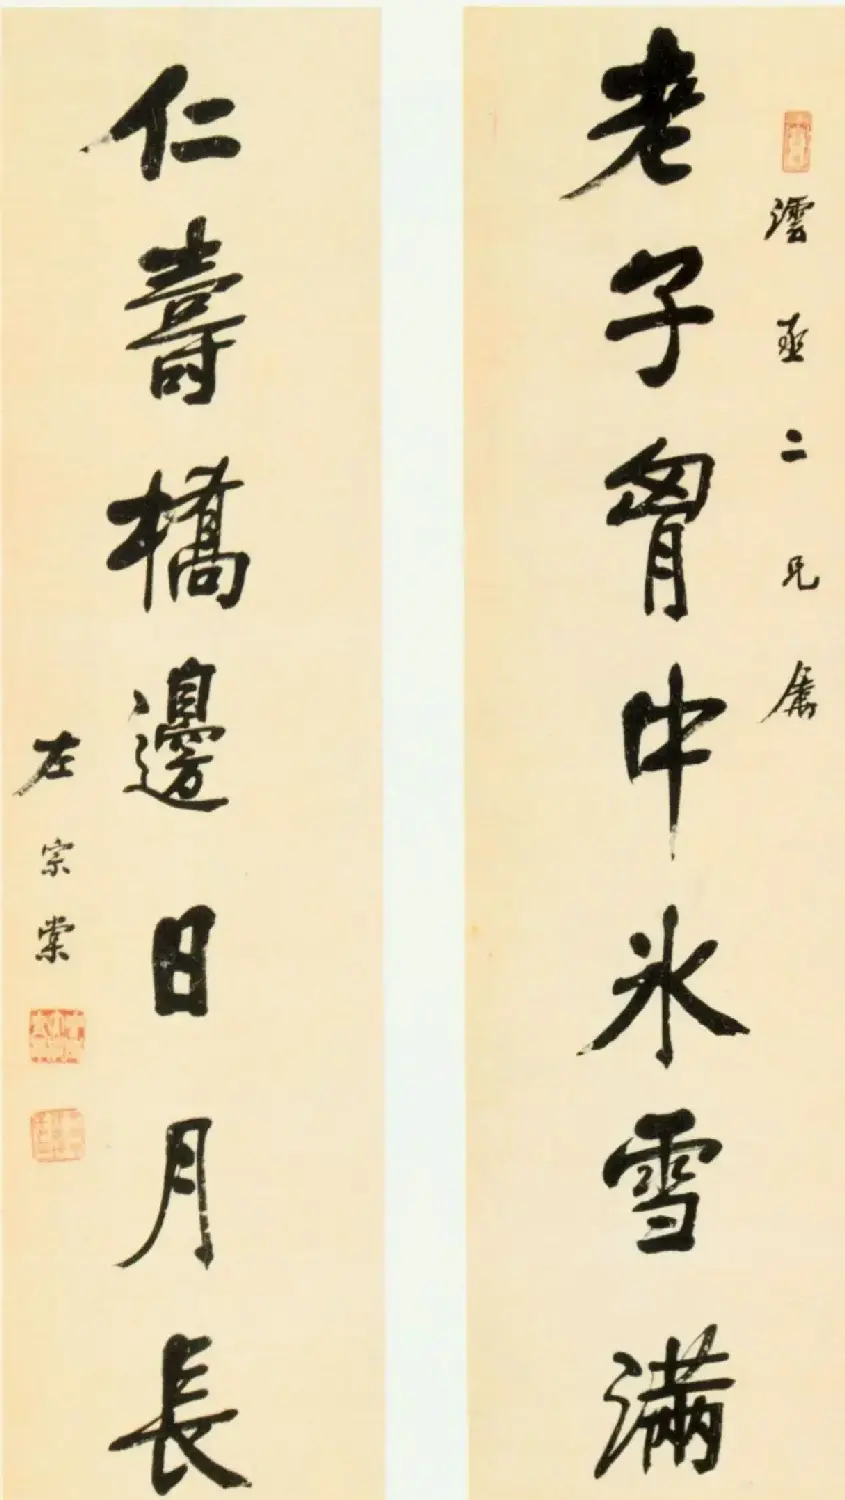 澐丞二兄屬
老子胷中氷雪滿
仁壽橋邊日月長
左宗棠